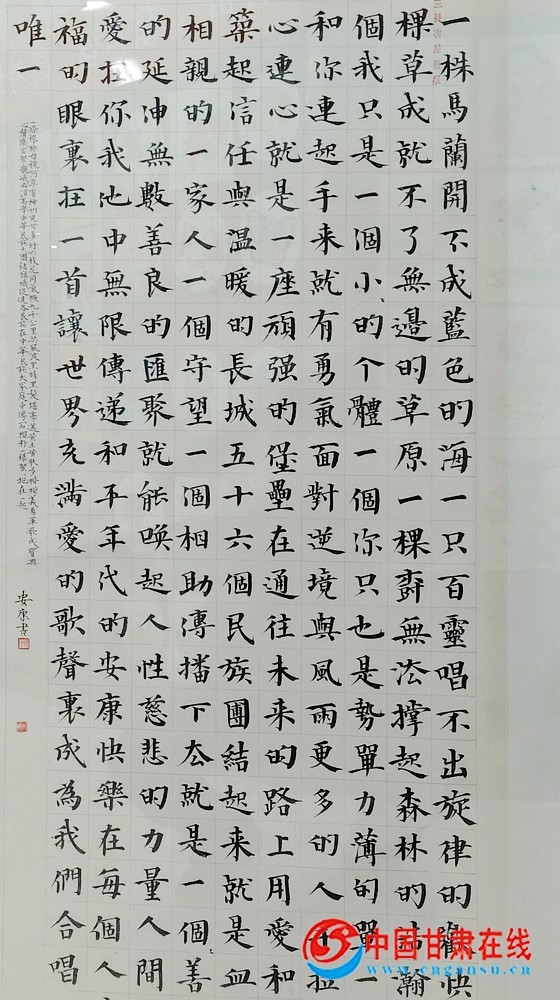 一株馬蘭開不成藍色的海一只百靈唱不出旋律的歡快
棵草成就不了無邊的草原一棵樹無法撑起森林的浩瀚
個我只是一個小〻的个體一個你只也是勢單力薄的單一
和你連起手来就有勇氣面對逆境與風雨更多的人手拉
心連心就是一座頑强的堡壘在通往未来的路上用愛和
築起信任與温暖的長城五十六個民族團結起来就是血
相親的一家人一個守望一個相助傳播下去就是一個善
的延伸無數善良的匯聚就能唤起人性慈悲的力量人間
愛在你我他中無限傳递和平年代的安康快樂在每個人
福的眼裏在一首讓世界充滿愛的歌聲裏成為我們合唱
唯一
中国甘肃在线
www.cngansu.cn